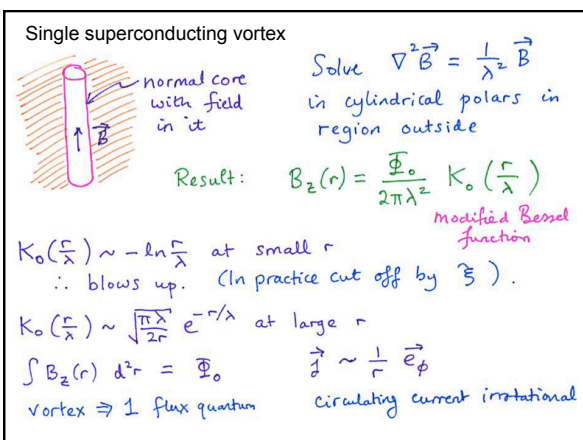 Single superconducting vortex
normal core
with field
in it
B⃗
Solve ∇²B⃗ = 1/λ² B⃗
in cylindrical polars in
region outside
Result: B_z(r) = Φ₀/2πλ² K₀(r/λ)
modified Bessel
function
K₀(r/λ) ~ -ln r/λ at small r
∴ blows up. (In practice cut off by ξ).
K₀(r/λ) ~ √(πλ/2r) e^(-r/λ) at large r
∫ B_z(r) d²r = Φ₀
j⃗ ~ 1/r e⃗_ϕ
vortex ⇒ 1 flux quantum
circulating current irrotational